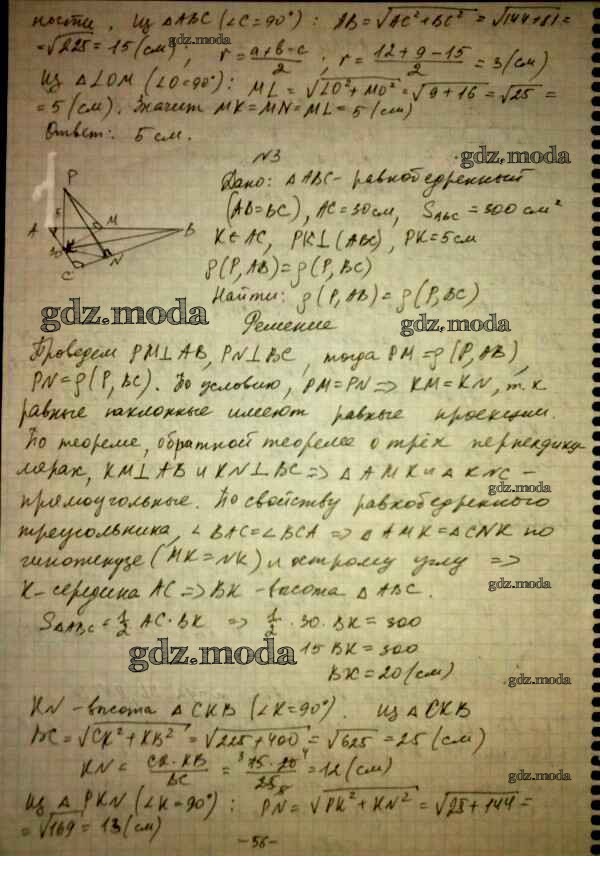 ности. Из ΔABC (∠C=90°): AB = √AC²+BC² = √144+81 =
= √225 = 15 (см), r = a+b-c / 2 ; r = 12+9-15 / 2 = 3 (см)
Из ΔLOM (∠O=90°): ML = √LO²+MO² = √9+16 = √25 =
= 5 (см). Значит MK=MN=ML=5 (см)
Ответ: 5 см.
N3
gdz.moda
Дано: ΔABC - равнобедренный
(AB=BC), AC=30см, SABC = 300 см²
K∈AC, PK⊥(ABC), PK=5см
ρ(P,AB)=ρ(P,BC)
Найти: ρ(P,AB)=ρ(P,BC)
P
5
M
A
B
K
30
N
C
gdz.moda
gdz.moda
Решение
Проведем PM⊥AB, PN⊥BC, тогда PM=ρ(P,AB),
PN=ρ(P,BC). По условию, PM=PN => KM=KN, т.к.
равные наклонные имеют равные проекции.
По теореме, обратной теореме о трёх перпендику-
лярах, KM⊥AB и KN⊥BC => ΔAMK и ΔKNC -
gdz.moda
прямоугольные. По свойству равнобедренного
треугольника, ∠BAC=∠BCA => ΔAMK=ΔCNK по
гипотенузе (MK=NK) и острому углу =>
K-середина AC => BK-высота ΔABC.
gdz.moda
SΔABC = 1/2 AC·BK => 1/2·30·BK = 300
15 BK = 300
gdz.moda
BK = 20 (см)
gdz.moda
KN - высота ΔCKB (∠K=90°). Из ΔCKB
BC = √CK²+KB² = √225+400 = √625 = 25 (см)
KN = CK·KB / BC = 15·20 / 25 = 12 (см)
gdz.moda
Из ΔPKN (∠K=90°): PN = √PK²+KN² = √25+144 =
= √169 = 13 (см)
-56-